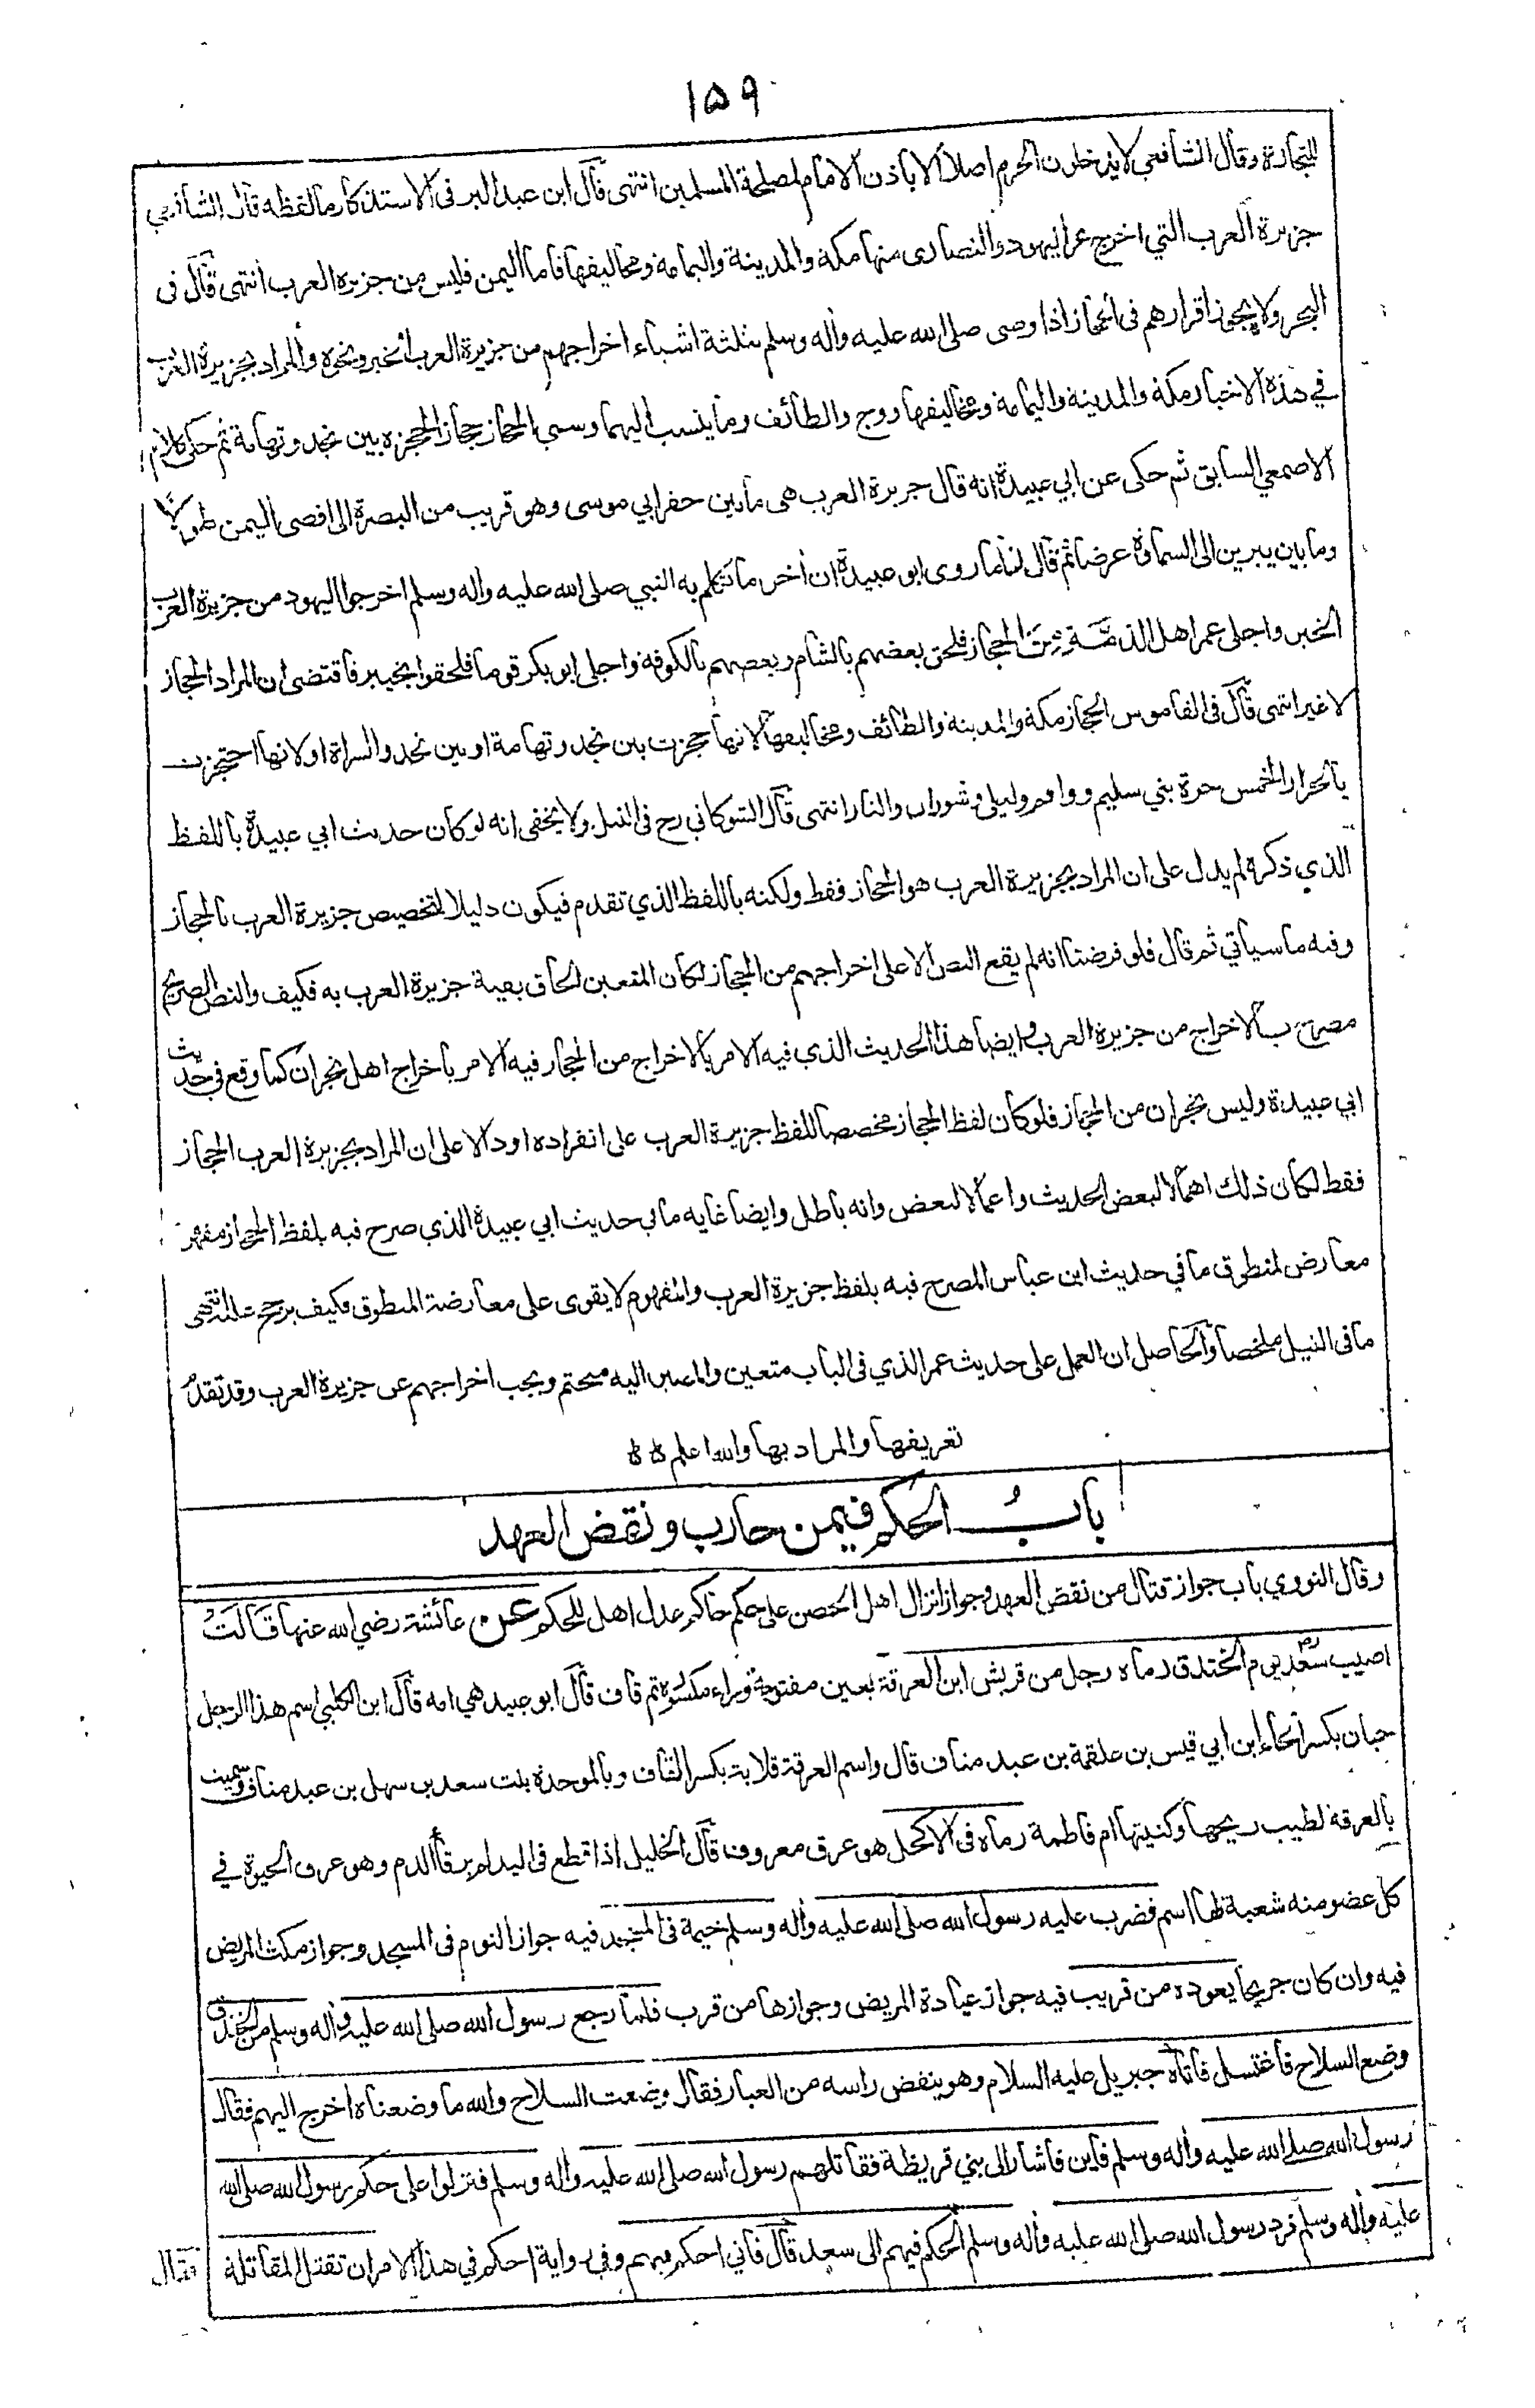 ١٥٩
للتجارة وقال الشافعي لا يدخلون الحرم اصلا الا باذن الامام لمصلحة المسلمين انتهى قال ابن عبد البر في الاستذكار ما لفظه قال الشافعي
جزيرة العرب التي اخرج عمر اليهود والنصارى منها مكة والمدينة واليمامة ومخاليفها فاما اليمن فليس من جزيرة العرب انتهى قال في
البحر ولا يجوز اقرارهم في الحجاز اذا وصى صلى الله عليه وأله وسلم بثلثة اشياء اخراجهم من جزيرة العرب الخبر ونحوه والمراد بجزيرة العرب
في هذه الاخبار مكة والمدينة واليمامة ومخاليفها ووج والطائف وما ينسب اليهما وسمي الحجاز حجازا لحجزه بين نجد وتهامة ثم حكى كلام
الاصمعي السابق ثم حكى عن ابي عبيدة انه قال جزيرة العرب هى ما بين حفر ابي موسى وهو قريب من البصرة الى اقصى اليمن طولا
وما بين يبرين الى السماوة عرضا ثم قال لنا ما روى ابو عبيدة ان أخر ما تكلم به النبي صلى الله عليه واله وسلم اخرجوا اليهود من جزيرة العرب
الخبر واجلى عمر اهل الذمة من الحجاز فلحق بعضهم بالشام وبعضهم بالكوفة واجلى ابو بكر قوما فلحقوا بخيبر فاقتضى ان المراد الحجاز
لا غير انتهى قال في القاموس الحجاز مكة والمدينة والطائف ومخاليفها لانها حجزت بين نجد وتهامة او بين نجد والسراة او لانها احتجزت
بالحرار الخمس حرة بني سليم وواقم وليلى وشوران والنار انتهى قال الشوكاني رح في النيل ولا يخفى انه لو كان حديث ابي عبيدة باللفظ
الذي ذكره لم يدل على ان المراد بجزيرة العرب هو الحجاز فقط ولكنه باللفظ الذي تقدم فيكون دليلا لتخصيص جزيرة العرب بالحجاز
وفيه ما سيأتي ثم قال فلو فرضنا انه لم يقع النص الا على اخراجهم من الحجاز لكان المتعين الحاق بقية جزيرة العرب به فكيف والنص الصريح
مصرح بالاخراج من جزيرة العرب وايضا هذا الحديث الذي فيه الامر بالاخراج من الحجاز فيه الامر باخراج اهل نجران كما وقع في حديث
ابي عبيدة وليس نجران من الحجاز فلو كان لفظ الحجاز مخصصا للفظ جزيرة العرب على انفراده او دالا على ان المراد بجزيرة العرب الحجاز
فقط لكان ذلك اهمالا لبعض الحديث واعمالا لبعض وانه باطل وايضا غاية ما في حديث ابي عبيدة الذي صرح فيه بلفظ الحجاز مفهومه
معارض لمنطوق ما في حديث ابن عباس المصرح فيه بلفظ جزيرة العرب والمفهوم لا يقوى على معارضة المنطوق فكيف يرجح عليه انتهى
ما في النيل ملخصا والحاصل ان العمل على حديث عمر الذي في الباب متعين والمصير اليه متحتم ويجب اخراجهم عن جزيرة العرب وقد تقدم
تعريفها والمراد بها والله اعلم
باب الحكم فيمن حارب ونقض العهد
وقال النووي باب جواز قتال من نقض العهد وجواز انزال اهل الحصن على حكم حاكم عدل اهل للحكم عن عائشة رضي الله عنها قَالَتْ
اصيب سعد يوم الخندق رماه رجل من قريش ابن العرقة بعين مفتوحة وراء مكسورة ثم قاف قال ابو عبيد هي امه قال ابن الكلبي اسم هذا الرجل
حبان بكسر الحاء ابن ابي قيس بن علقمة بن عبد مناف قال واسم العرقة قلابة بكسر القاف وبالموحدة بنت سعد بن سهل بن عبد مناف وسميت
بالعرقة لطيب ريحها وكنيتها ام فاطمة رماه في الاكحل هو عرق معروف قال الخليل اذا قطع في اليد لم يرقأ الدم وهو عرق الحيوة في
كل عضو منه شعبة لها اسم فضرب عليه رسول الله صلى الله عليه وأله وسلم خيمة في المسجد فيه جواز النوم في المسجد وجواز مكث المريض
فيه وان كان جريحا يعوده من قريب فيه جواز عيادة المريض وجوازها من قرب فلما رجع رسول الله صلى الله عليه وأله وسلم من الخندق
وضع السلاح فاغتسل فاتاه جبريل عليه السلام وهو ينفض راسه من الغبار فقال وضعت السلاح والله ما وضعناه اخرج اليهم فقال
رسول الله صلى الله عليه وأله وسلم فأين فاشار الى بني قريظة فقاتلهم رسول الله صلى الله عليه وأله وسلم فنزلوا على حكم رسول الله صلى الله
عليه وأله وسلم فرد رسول الله صلى الله عليه وأله وسلم الحكم فيهم الى سعد قال فاني احكم فيهم وفي رواية احكم في هذا الامر ان تقتل المقاتلة
فقال